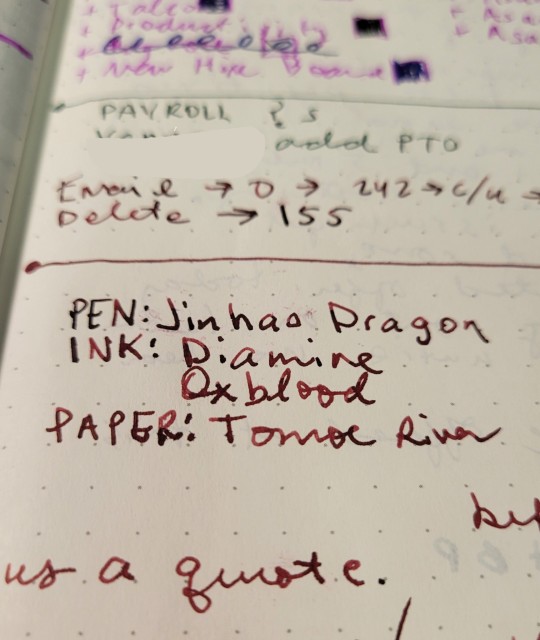 + Product
+ New Hire
PAYROLL
add PTO
Email → 0 → 242 → c/u →
Delete → 155
PEN: Jinhao Dragon
INK: Diamine
Oxblood
PAPER: Tomoe River
us a quote.